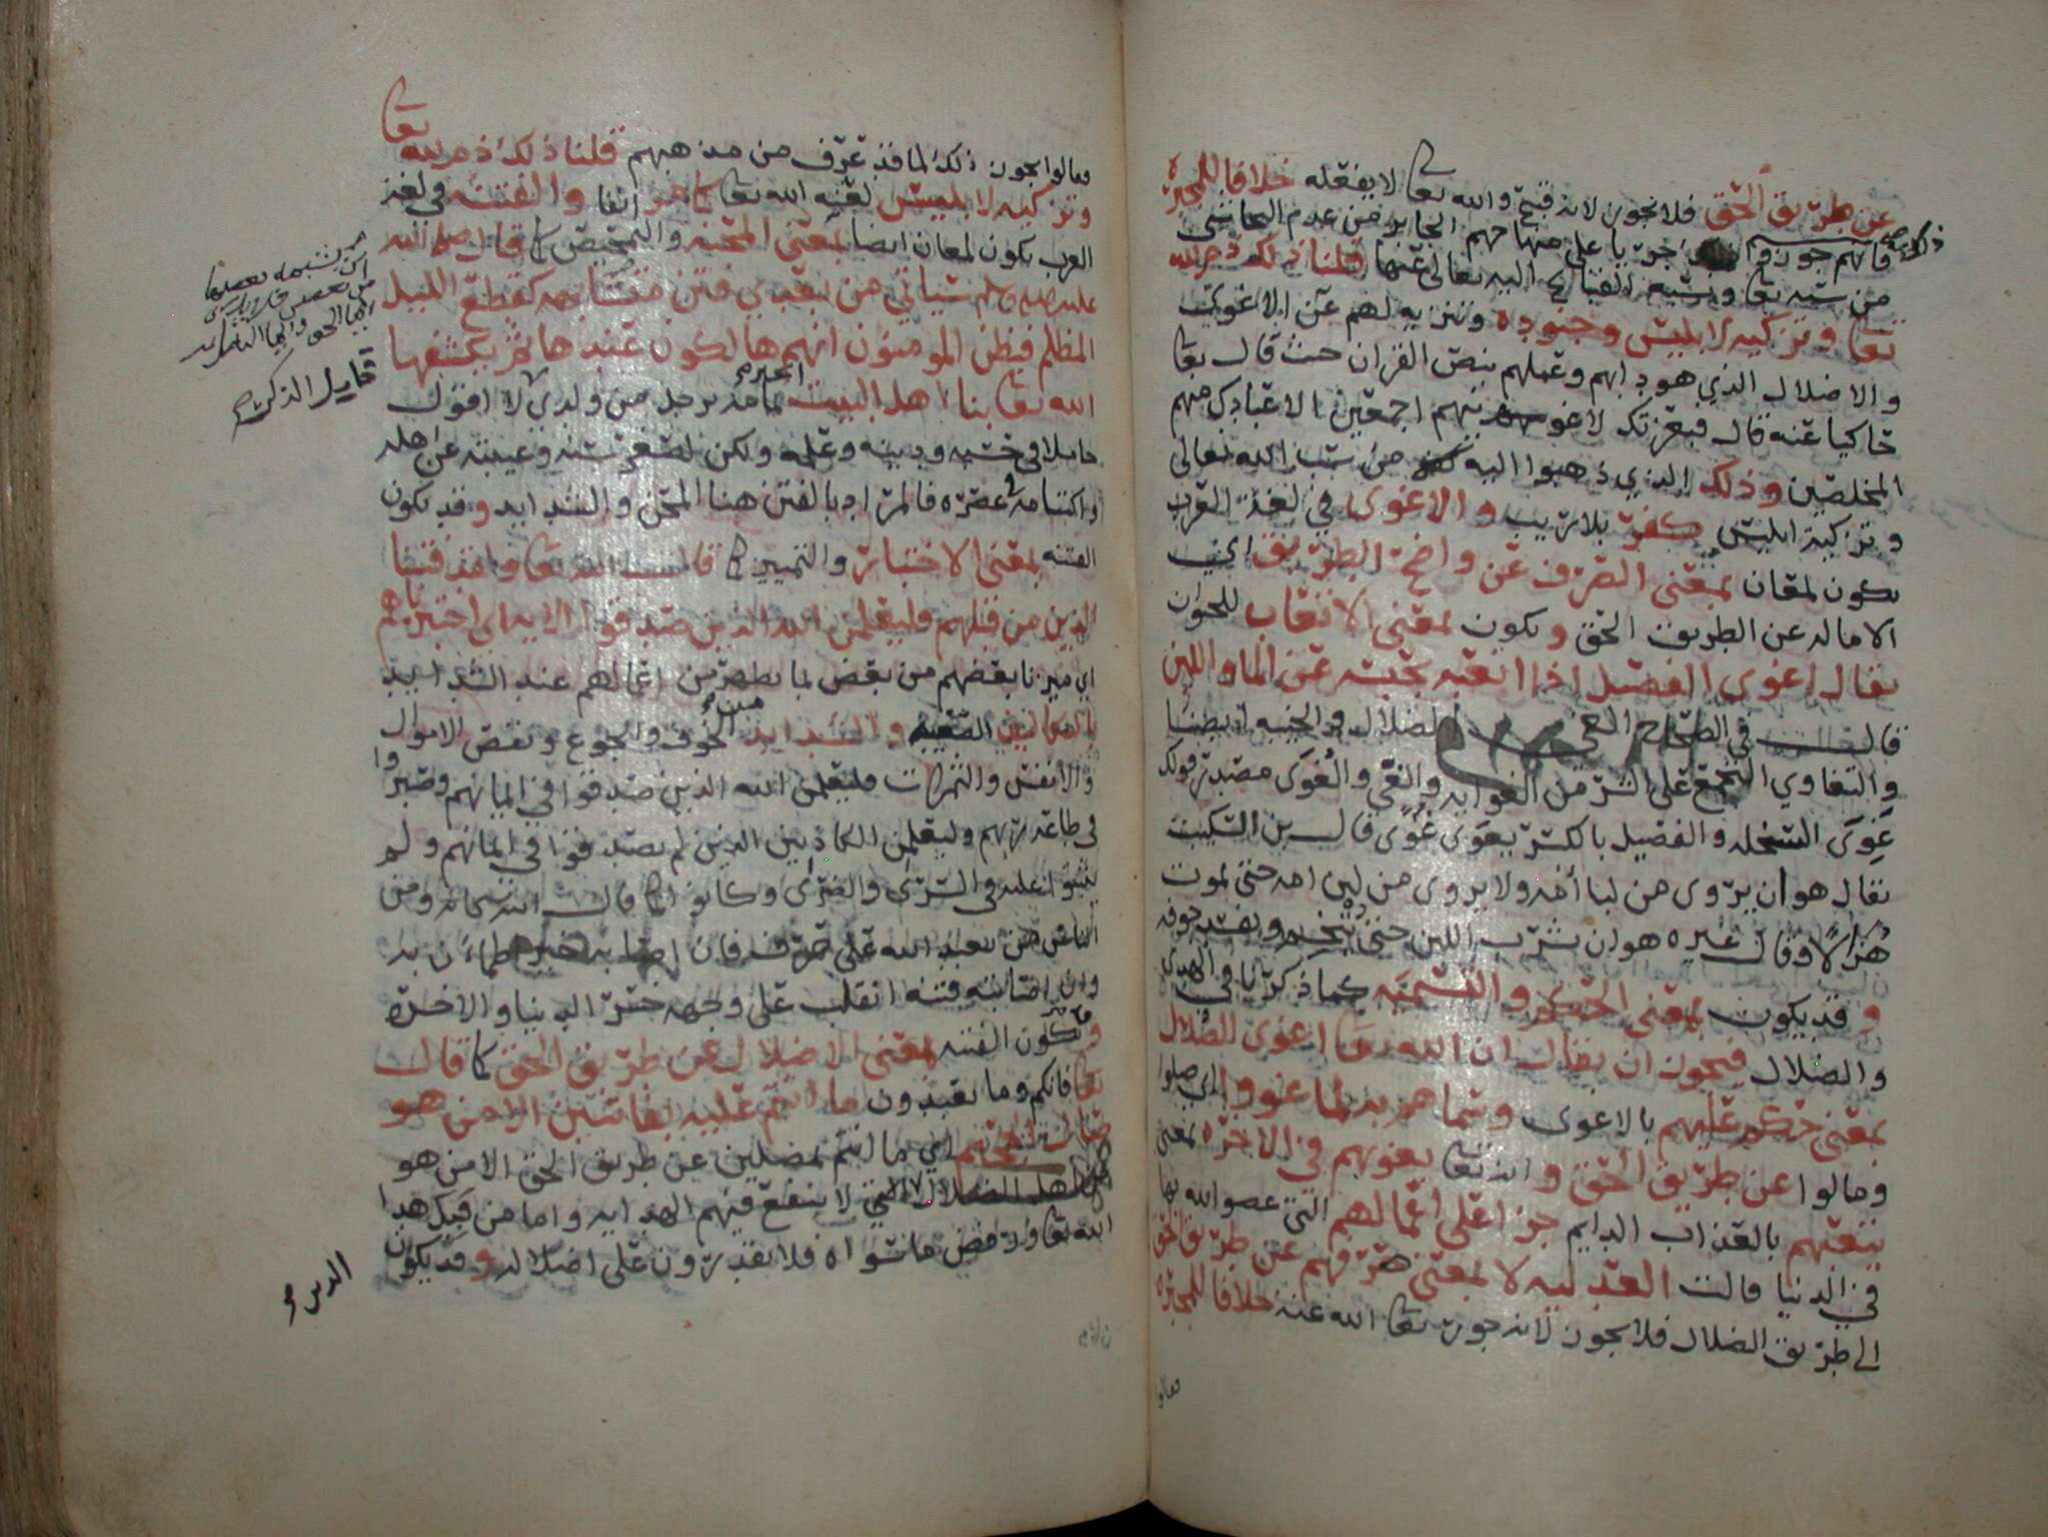 عن طريق الحق فلا يجوز لانه قبيح والله تعالى لا يفعله خلافا للمجبرة
فانهم جوزوا جريا على منهاجهم الجاير من عدم التحاشي
من سبه تعالى ونسبة القبايح اليه تعالى عنها قلنا ذلك ذم لله
تعالى وتزكية لابليس وجنوده وتنزيه لهم عن الاغوى
والاضلال الذي هو دابهم وعملهم بنص القران حيث قال تعالى
حاكيا عنه قال فبعزتك لاغوينهم اجمعين الا عبادك منهم
المخلصين وذلك الذي ذهبوا اليه من سب الله تعالى
وتزكية ابليس كفر بلا ريب والاغوى في لغة العرب
يكون لمعان بمعنى الصرف عن واضح الطريق اي
الاماله عن الطريق الحق ويكون بمعنى الاتعاب للحيوان
يقال اغوى الفصيل اذا اتعبه بحبسه عن الما واللبن
قال في الصحاح الغي الضلال والخيبه ايضا
والتغاوي التجمع على الشر من الغوايه والغي والغوى مصدر قولك
غوى السخله والفصيل بالكسر يغوى غوى قال بن السكيت
يقال هو ان يروى من لبا أمه ولا يروى من لبن امه حتى يموت
هزالا وقال غيره هو ان يشرب اللبن حتى يتخم ويفسد جوفه
وقد يكون بمعنى الحكم والتسميه كما ذكرنا في الهدى
والضلال فيجوز ان يقال ان الله تعالى اغوى الضلال
بمعنى حكم عليهم بالاغوى وسماهم به لما غووا اي ضلوا
ومالوا عن طريق الحق وانه تعالى يغويهم في الاخره بمعنى
يتعبهم بالعذاب الدايم جزا على اعمالهم التي عصوا الله بها
في الدنيا قالت العدليه لا بمعنى صرفهم عن طريق الحق
الى طريق الضلال فلا يجوز لانه جور تعالى الله عنه خلافا للمجبره
فقالوا
فقالوا يجوز ذلك لما قد عرف من مذهبهم قلنا ذلك ذم لله تعالى
وتزكيه لابليس لعنه الله تعالى كما مر انفا والفتنه في لغة
العرب يكون لمعان ايضا بمعنى المحنه والتمحيص كما قال صلى الله
عليه وسلم ستاتي من بعدي فتن متشابهه كقطع الليل
المظلم فيظن المومنون انهم هالكون عندها ثم يكشفها
الله تعالى بنا اهل البيت برجل من ولدي لا اقول
خاملا في حسبه ودينه وعلمه ولكن لصغر سنه وغيبته عن اهله
واكتتامه في عصره فالمراد بالفتن هنا المحن والشدايد وقد يكون
الفتنه بمعنى الاختبار والتمييز كما قال الله تعالى ولقد فتنا
الذين من قبلهم فليعلمن الله الذين صدقوا الايه اي اختبرناهم
اي ميزنا بعضهم من بعض لما يظهر من اعمالهم عند الشدايد
بالتكاليف الصعبه والشدايد من الخوف والجوع ونقص الاموال
والانفس والثمرات فليعلمن الله الذين صدقوا في ايمانهم وصبروا
في طاعة ربهم وليعلمن الكاذبين الذين لم يصدقوا في ايمانهم ولم
يثبتوا عليه في السرى والضرى وكانوا كما قال الله سبحانه ومن
الناس من يعبد الله على حرف فان اصابه خير اطمأن به
وان اصابته فتنه انقلب على وجهه خسر الدنيا والاخره
وتكون الفتنه بمعنى الاضلال عن طريق الحق كما قال
تعالى فانكم وما تعبدون ما انتم عليه بفاتنين الا من هو
صال الجحيم اي ما انتم بمضلين عن طريق الحق الا من هو
من اهل الضلال الذي لا ينفع فيهم الهدايه واما من قبل هدا
الله تعالى ورفض ما سواه فلا يقدرون على اضلاله وقد يكون